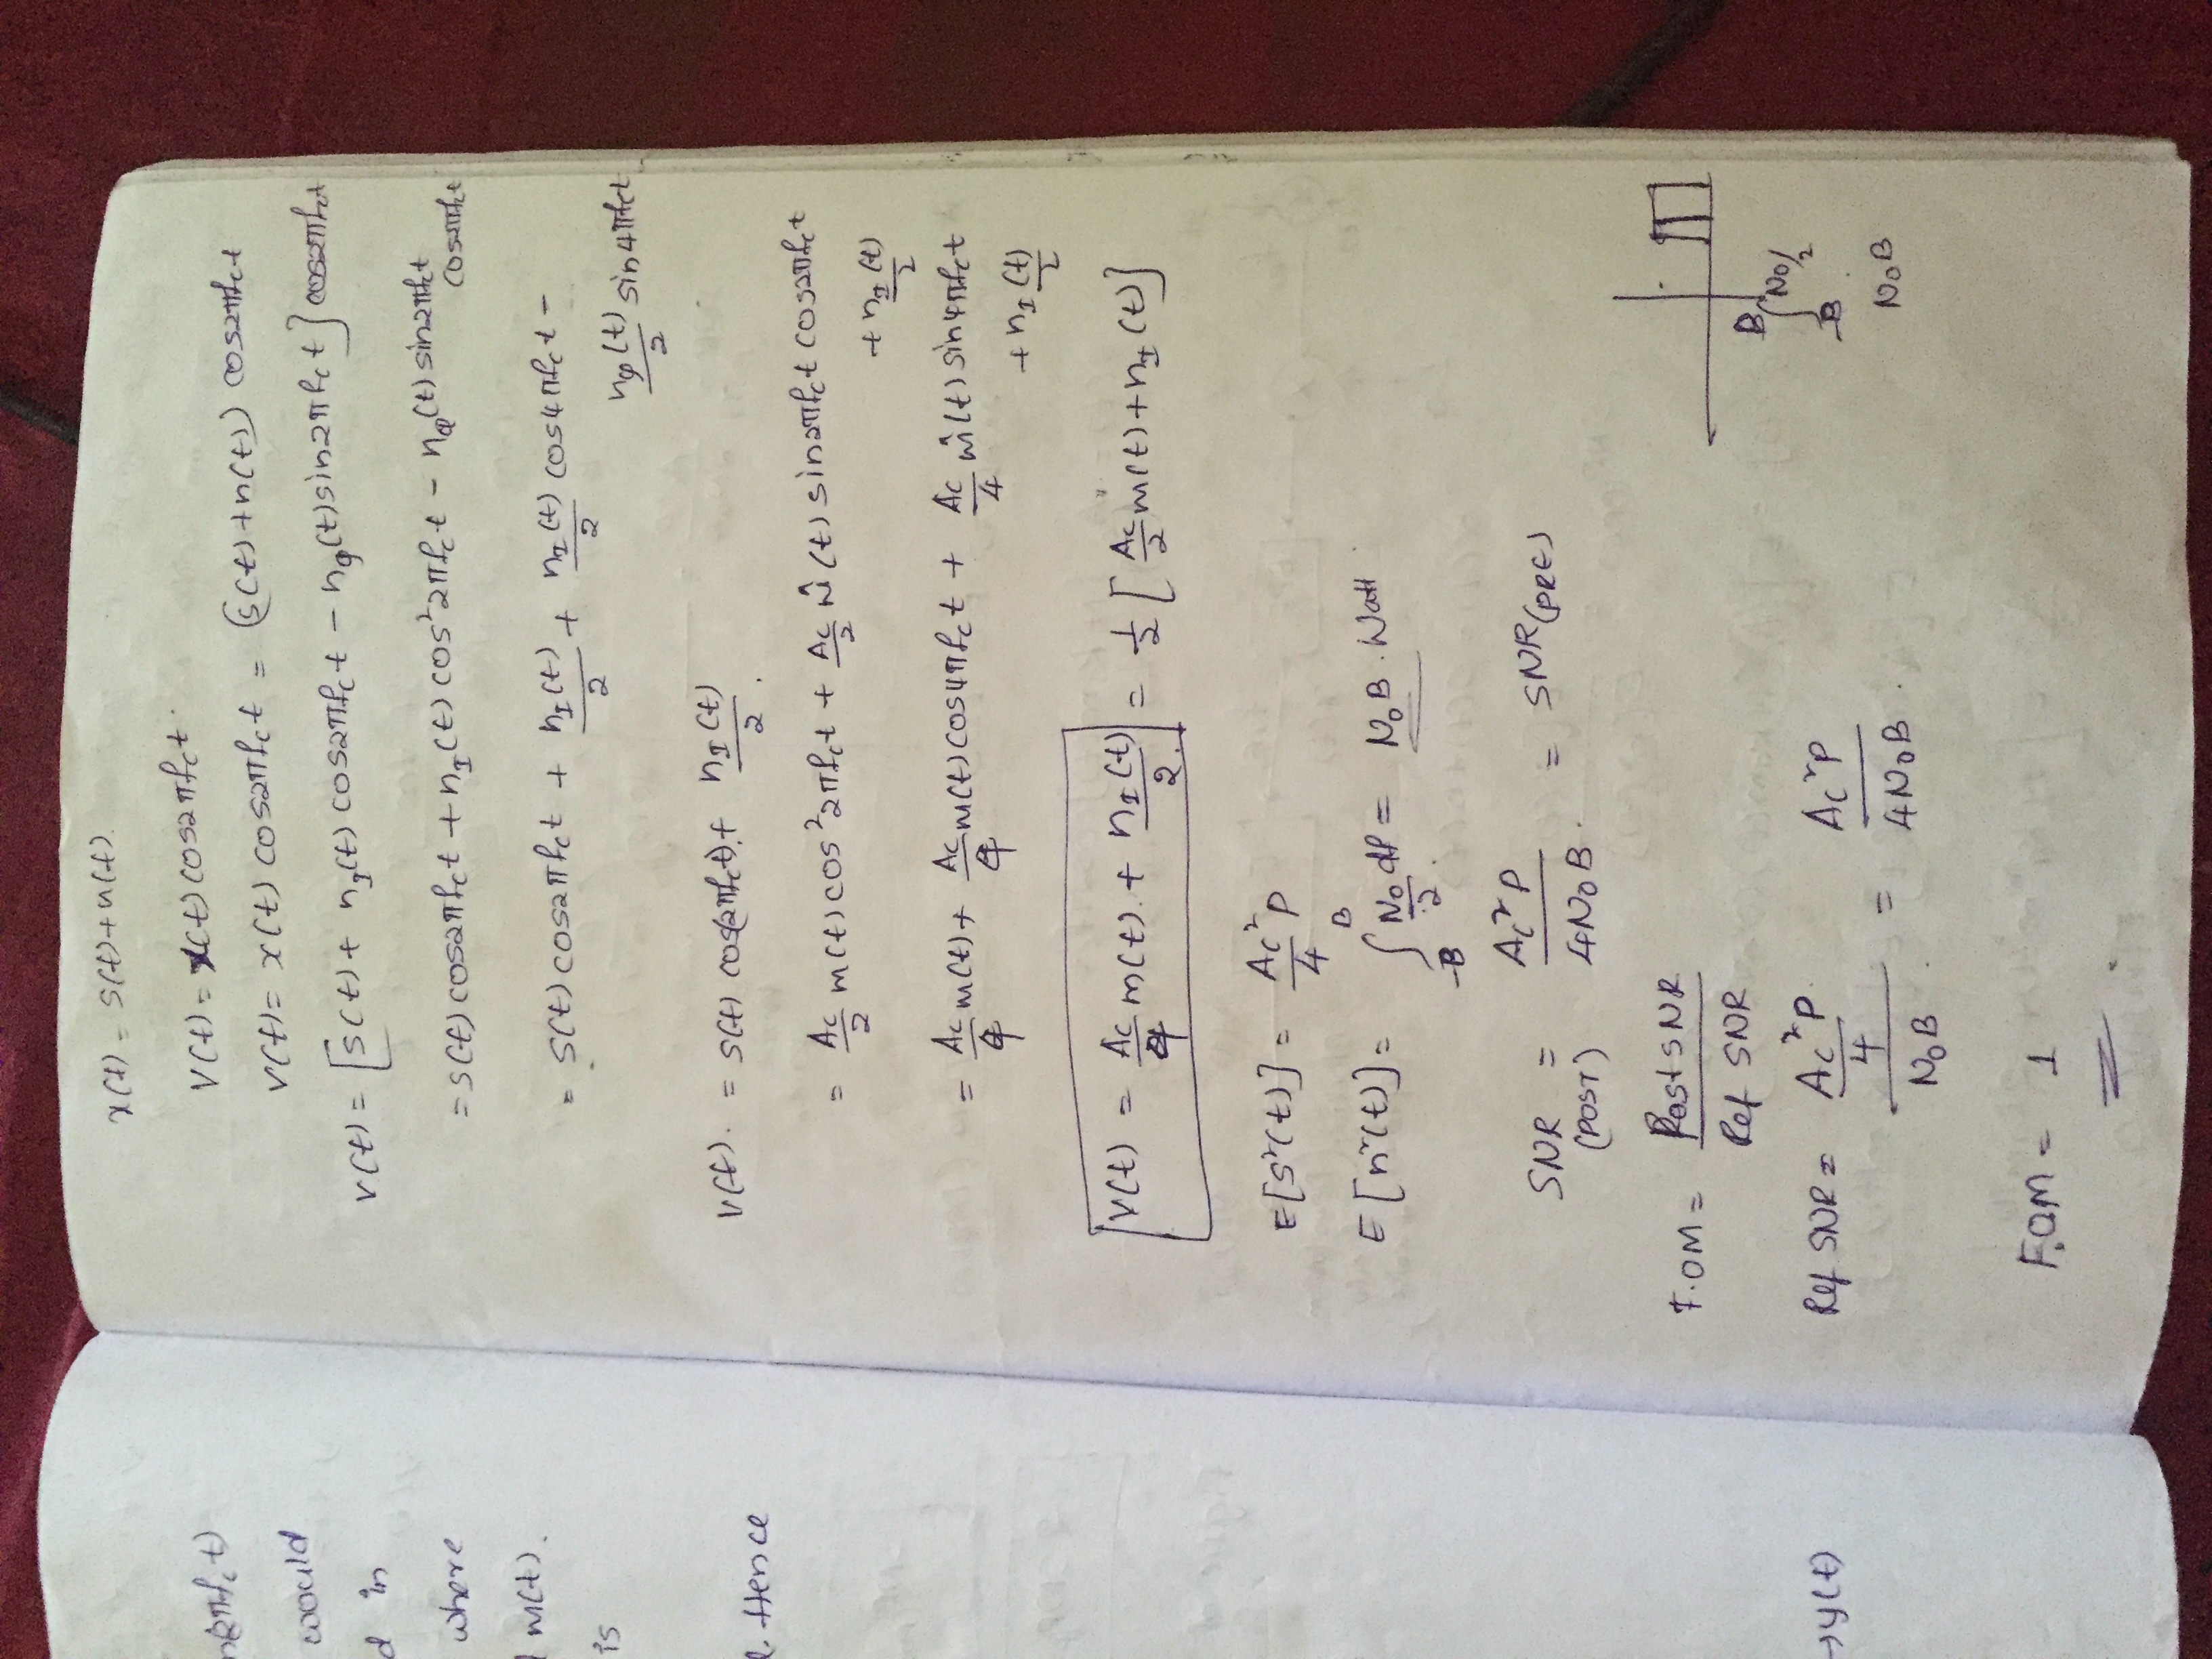 n(2πf_c t)
would
d in
where
m(t).
is
Hence
→y(t)
x(t) = s(t)+n(t).
V(t) = x(t) cos2πf_c t.
V(t) = x(t) cos2πf_c t = (s(t)+n(t)) cos2πf_c t
V(t) = [s(t) + n_I(t) cos2πf_c t − n_Q(t) sin2πf_c t] cos2πf_c t
= s(t) cos2πf_c t + n_I(t) cos²2πf_c t − n_Q(t) sin2πf_c t cos2πf_c t
= s(t) cos2πf_c t + n_I(t)/2 + n_I(t)/2 cos4πf_c t −
n_Q(t)/2 sin4πf_c t
V(t). = s(t) cos(2πf_c t). + n_I(t)/2.
= A_c/2 m(t) cos²2πf_c t + A_c/2 m̂(t) sin2πf_c t cos2πf_c t
+ n_I(t)/2
= A_c/4 m(t) + A_c/4 m(t) cos4πf_c t + A_c/4 m̂(t) sin4πf_c t
+ n_I(t)/2
V(t) = A_c/4 m(t). + n_I(t)/2. = 1/2 [A_c/2 m(t) + n_I(t)]
E[s²(t)] = A_c²/4 P
E[n²(t)] = ∫_{-B}^{B} N₀/2 df = N₀B. Watt
SNR (POST) = A_c²P/4N₀B. = SNR (PRE)
F.OM = Post SNR/Ref SNR
Ref SNR = (A_c²P/4)/N₀B = A_c²P/4N₀B.
∫_{-B}^{B} N₀/2
N₀B
F.OM = 1